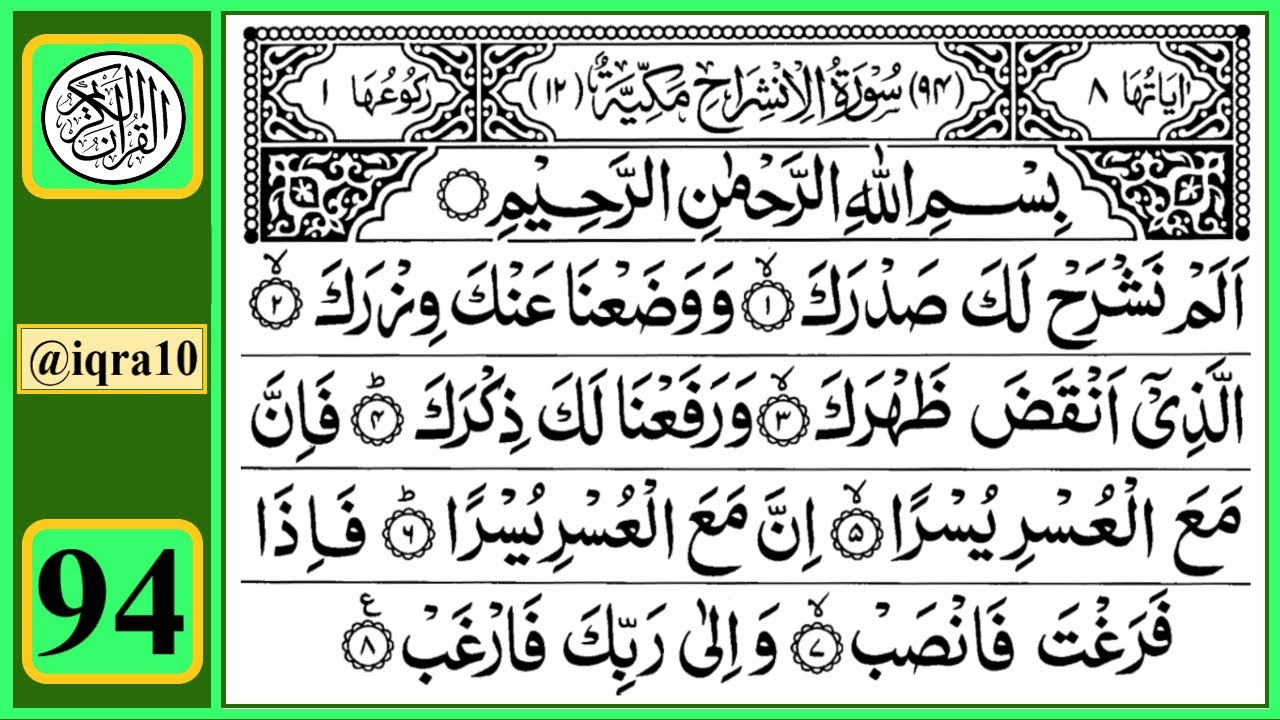 القرآن الكريم
@iqra10
94
اٰيَاتُهَا ٨ (٩٤) سُوْرَةُ الْاِنْشِرَاحِ مَكِّيَّةٌ (١٢) رَكُوْعُهَا ١
بِسْمِ اللّٰهِ الرَّحْمٰنِ الرَّحِيْمِ
اَلَمْ نَشْرَحْ لَكَ صَدْرَكَ ۙ﴿١﴾ وَوَضَعْنَا عَنْكَ وِزْرَكَ ۙ﴿٢﴾
الَّذِيْٓ اَنْقَضَ ظَهْرَكَ ۙ﴿٣﴾ وَرَفَعْنَا لَكَ ذِكْرَكَ ؕ﴿٤﴾ فَاِنَّ
مَعَ الْعُسْرِ يُسْرًا ۙ﴿٥﴾ اِنَّ مَعَ الْعُسْرِ يُسْرًا ؕ﴿٦﴾ فَاِذَا
فَرَغْتَ فَانْصَبْ ۙ﴿٧﴾ وَاِلٰى رَبِّكَ فَارْغَبْ ﴿٨﴾ ع